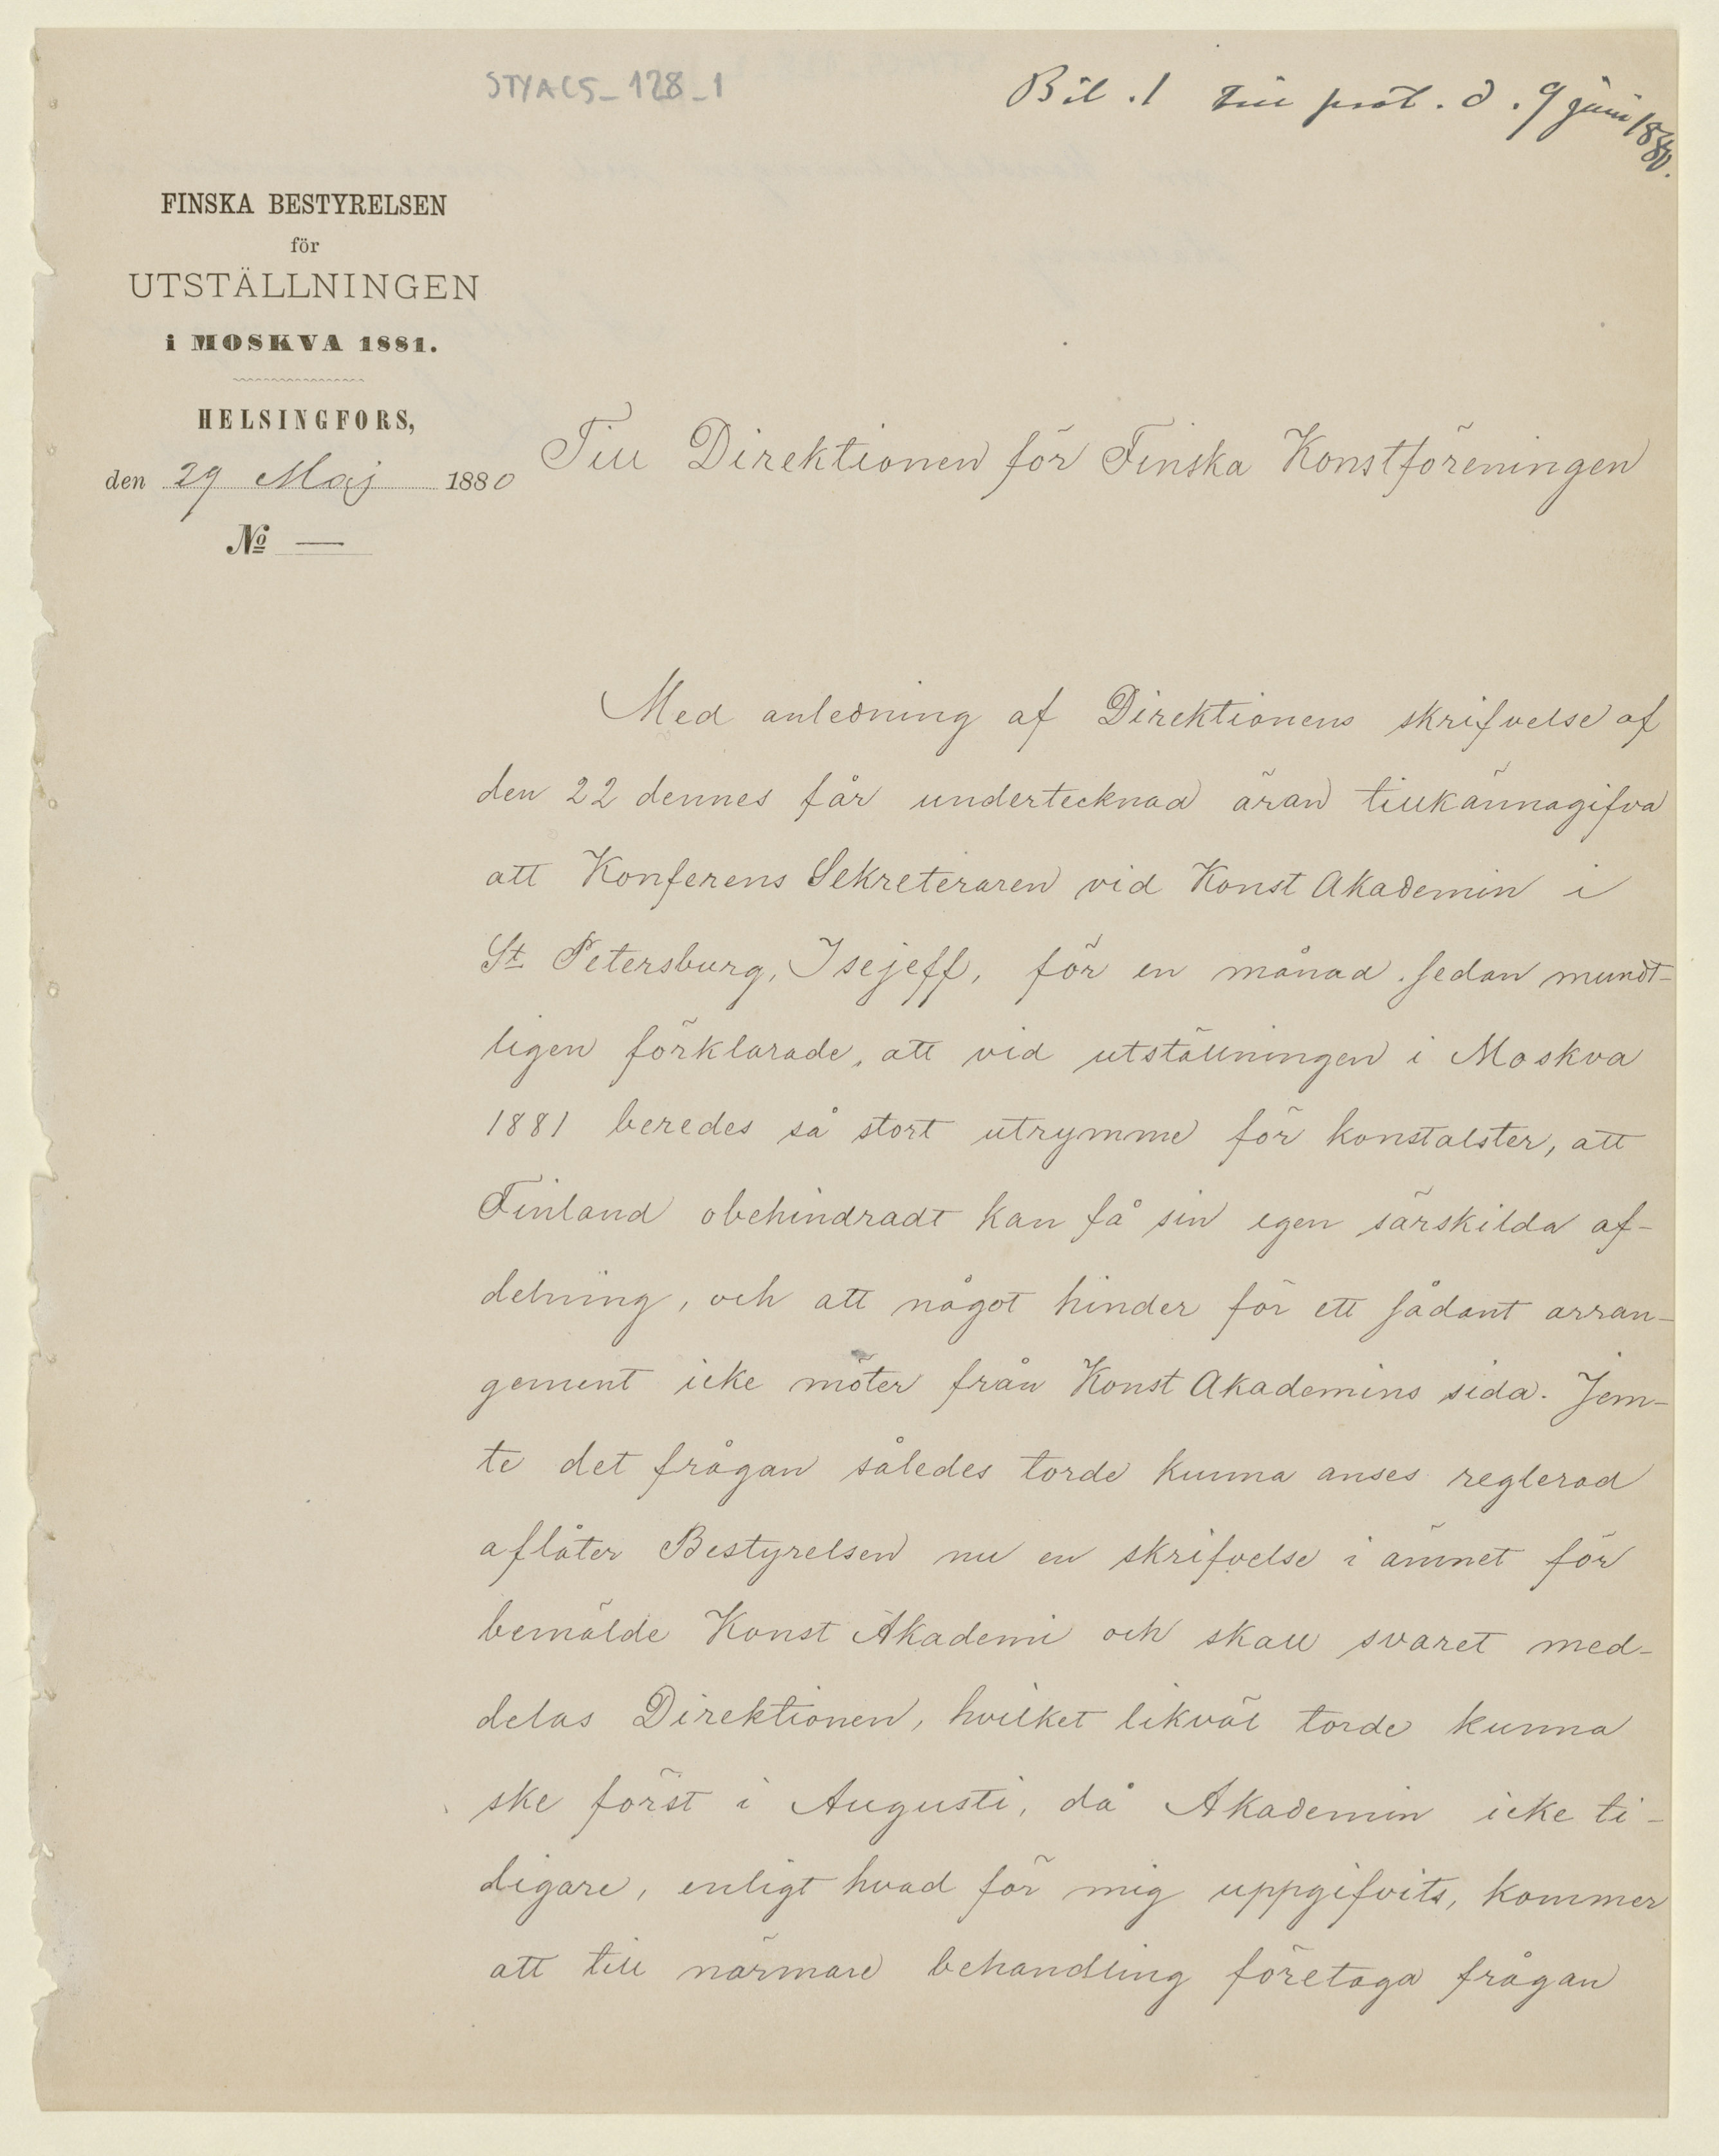 STYACS_128_1
Bil. 1 till prot. d. 9 juni 1880.
FINSKA BESTYRELSEN
för
UTSTÄLLNINGEN
i MOSKVA 1881.
HELSINGFORS,
den 29 Maj 1880
No —
Till Direktionen för Finska Konstföreningen
Med anledning af Direktionens skrifvelse af
den 22 dennes får undertecknad äran tillkännagifva
att Konferens Sekreteraren vid Konst Akademin i
St Petersburg, Isejeff, för en månad sedan mundt-
ligen förklarade, att vid utställningen i Moskva
1881 beredes så stort utrymme för konstalster, att
Finland obehindradt kan få sin egen särskilda af-
delning, och att något hinder för ett sådant arran-
gement icke möter från Konst Akademins sida. Jem-
te det frågan således torde kunna anses reglerad
aflåter Bestyrelsen nu en skrifvelse i ämnet för
bemälde Konst Akademi och skall svaret med-
delas Direktionen, hvilket likväl torde kunna
ske först i Augusti, då Akademin icke ti-
digare, enligt hvad för mig uppgifvits, kommer
att till närmare behandling företaga frågan